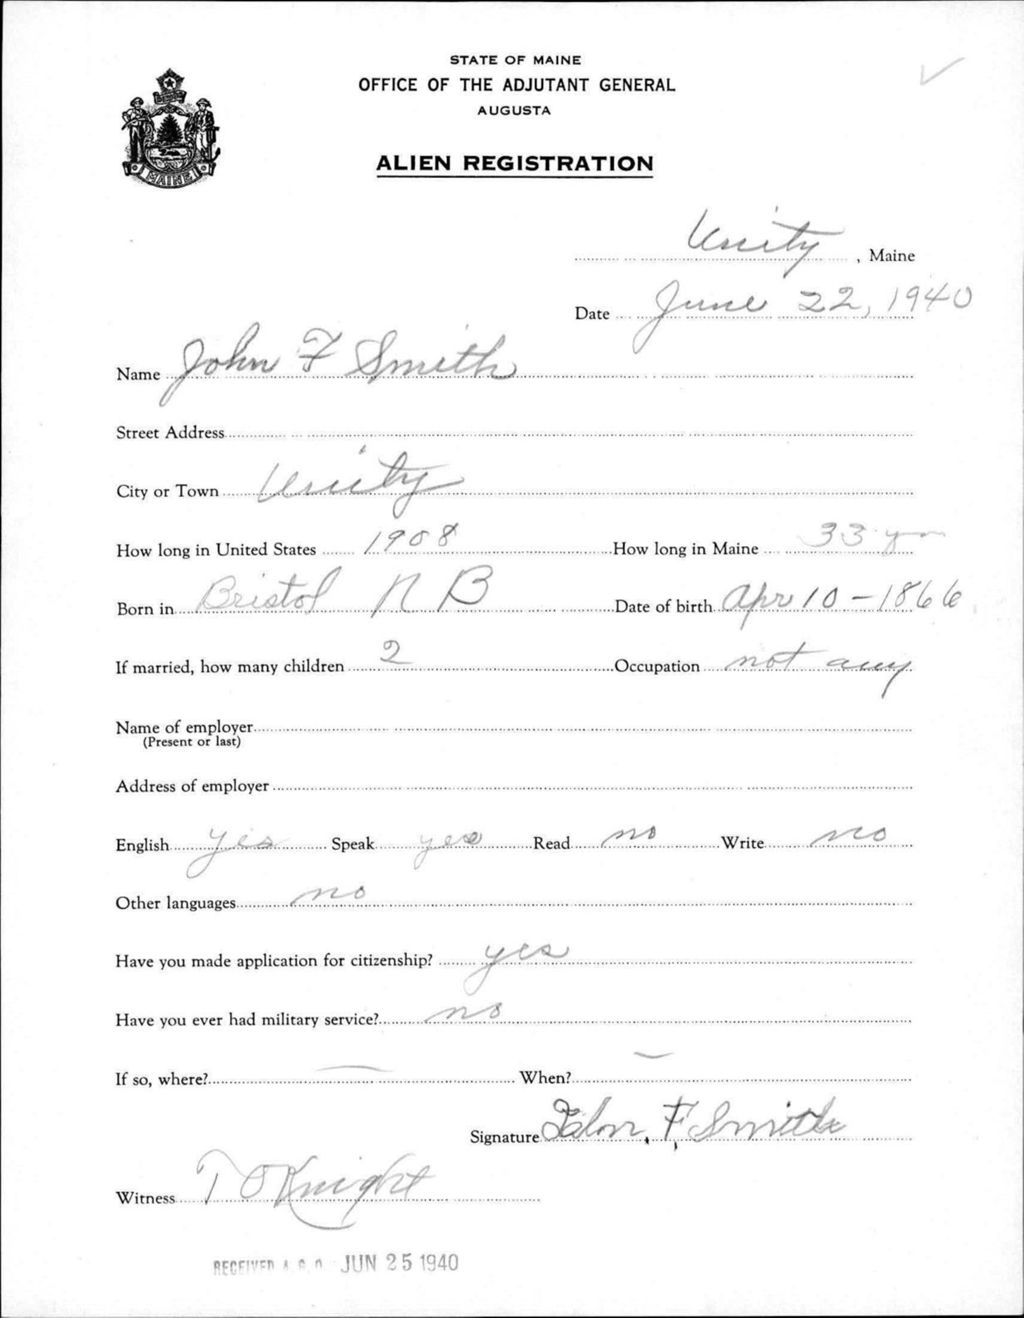 STATE OF MAINE
OFFICE OF THE ADJUTANT GENERAL
AUGUSTA
MAINE
ALIEN REGISTRATION
Unity, Maine
Date June 22, 1940
Name John F Smith
Street Address
City or Town Unity
How long in United States 1908 How long in Maine 33 yrs
Born in Bristol N B Date of birth Apr 10 - 1866
If married, how many children 2 Occupation not any
Name of employer
(Present or last)
Address of employer
English yes Speak yes Read no Write no
Other languages no
Have you made application for citizenship? yes
Have you ever had military service? no
If so, where? — When? —
Signature John, F, Smith
Witness T O Knight
RECEIVED A. G. O. JUN 25 1940